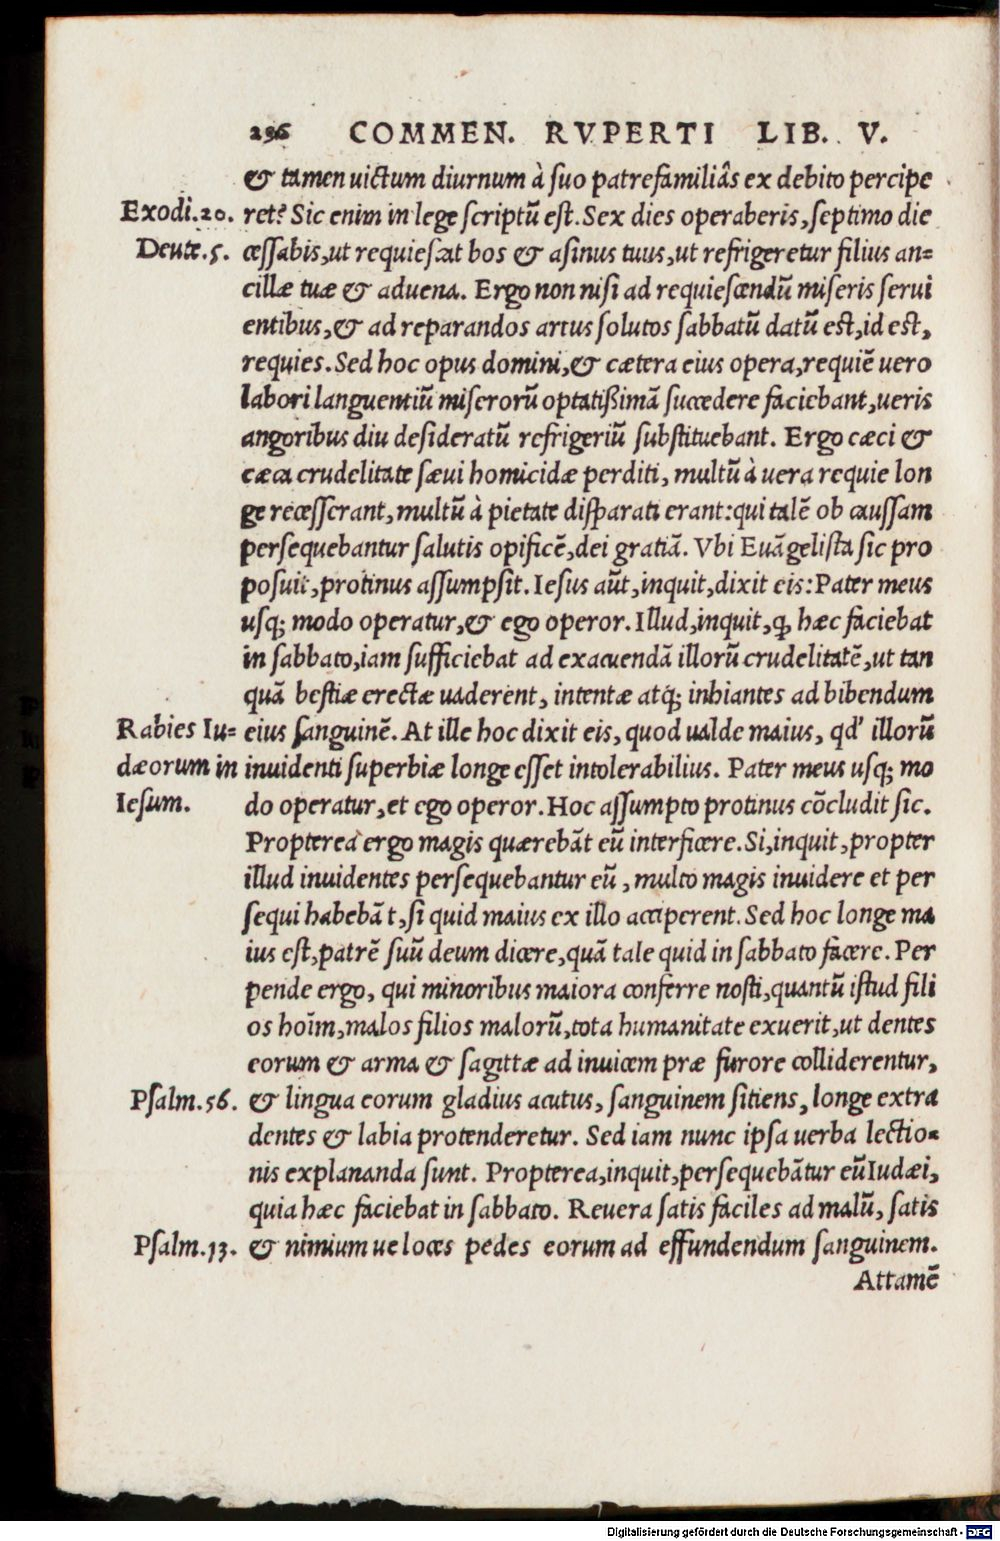 296 COMMEN. RVPERTI LIB. V.
& tamen uictum diurnum à suo patrefamiliâs ex debito percipe
Exodi.20. ret? Sic enim in lege scriptũ est. Sex dies operaberis, septimo die
Deute.5. cessabis, ut requiescat bos & asinus tuus, ut refrigeretur filius an=
cillæ tuæ & aduena. Ergo non nisi ad requiescendũ miseris serui
entibus, & ad reparandos artus solutos sabbatũ datũ est, id est,
requies. Sed hoc opus domini, & cætera eius opera, requiẽ uero
labori languentiũ miserorũ optatißimã succedere faciebant, ueris
angoribus diu desideratũ refrigeriũ substituebant. Ergo cæci &
cæca crudelitate sæui homicidæ perditi, multũ à uera requie lon
ge recesserant, multũ à pietate disparati erant: qui talẽ ob caussam
persequebantur salutis opificẽ, dei gratiã. Vbi Euãgelista sic pro
posuit, protinus assumpsit. Iesus aũt, inquit, dixit eis: Pater meus
usq; modo operatur, & ego operor. Illud, inquit, ꝙ hæc faciebat
in sabbato, iam sufficiebat ad exacuendã illorũ crudelitatẽ, ut tan
quã bestiæ erectæ uaderent, intentæ atq; inhiantes ad bibendum
Rabies Iu= eius sanguinẽ. At ille hoc dixit eis, quod ualde maius, qd' illorũ
dæorum in inuidenti superbiæ longe esset intolerabilius. Pater meus usq; mo
Iesum. do operatur, et ego operor. Hoc assumpto protinus cõcludit sic.
Propterea ergo magis quærebãt eũ interficere. Si, inquit, propter
illud inuidentes persequebantur eũ, multo magis inuidere et per
sequi habebãt, si quid maius ex illo acciperent. Sed hoc longe ma
ius est, patrẽ suũ deum dicere, quã tale quid in sabbato facere. Per
pende ergo, qui minoribus maiora conferre nosti, quantũ istud fili
os hoĩm, malos filios malorũ, tota humanitate exuerit, ut dentes
eorum & arma & sagittæ ad inuicem præ furore colliderentur,
Psalm.56. & lingua eorum gladius acutus, sanguinem sitiens, longe extra
dentes & labia protenderetur. Sed iam nunc ipsa uerba lectio=
nis explananda sunt. Propterea, inquit, persequebãtur eũ Iudæi,
quia hæc faciebat in sabbato. Reuera satis faciles ad malũ, satis
Psalm.13. & nimium ueloces pedes eorum ad effundendum sanguinem.
Attamẽ
Digitalisierung gefördert durch die Deutsche Forschungsgemeinschaft - DFG